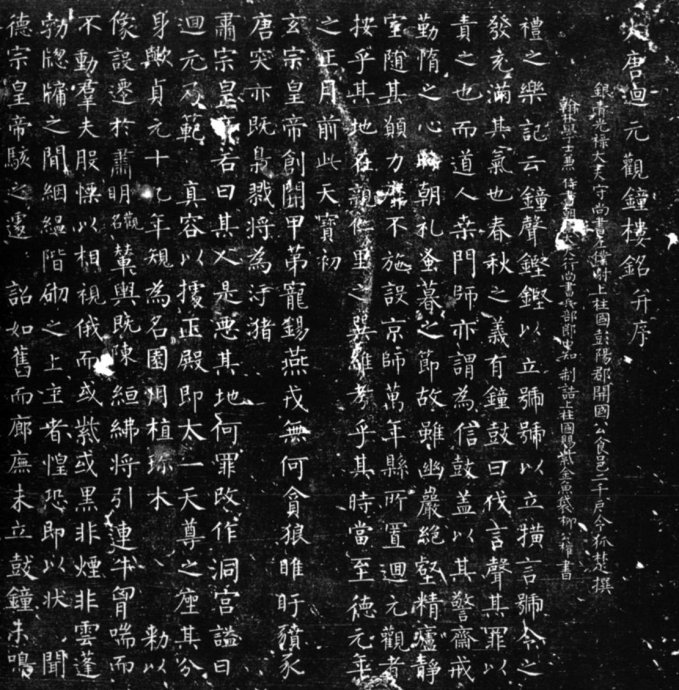 大唐迴元觀鐘樓銘并序
銀青光祿大夫守尚書左僕射上柱國彭陽郡開國公食邑二千戶令狐楚撰
翰林學士兼侍書朝議大夫行尚書兵部郎中知制誥上柱國賜紫金魚袋柳公權書
禮之樂記云鐘聲鏗鏗以立號號以立橫言號令之
發充滿其氣也春秋之義有鐘鼓曰伐言聲其罪以
責之也而道人桒門師亦謂為信鼓蓋以其警齋戒
勤惰之心時朝礼蚤暮之節故雖幽巖絕壑精廬靜
室隨其願力靡不施設京師萬年縣所置迴元觀者
按乎其地在親仁里之巽維考乎其時當至德元年
之正月前此天寶初
玄宗皇帝創開甲第寵錫燕戎無何貪狼睢盱豶豕
唐突亦既梟戮將為汙猪
肅宗皇帝若曰其人是惡其地何罪改作洞宮諡曰
迴元乃範 真容以據正殿即太一天尊之座其分
身歟貞元十九年規為名園用植珎木 勑以
像設遷於肅明觀名輦輿既陳 絙紼將引連牛胷喘而
不動羣夫股慄以相視俄而或紫或黑非煙非雲蓬
勃牎牖之間絪縕階砌之上主者惶恐即以狀 聞
德宗皇帝駭之遽 詔如舊而廊廡未立鼓鐘未鳴